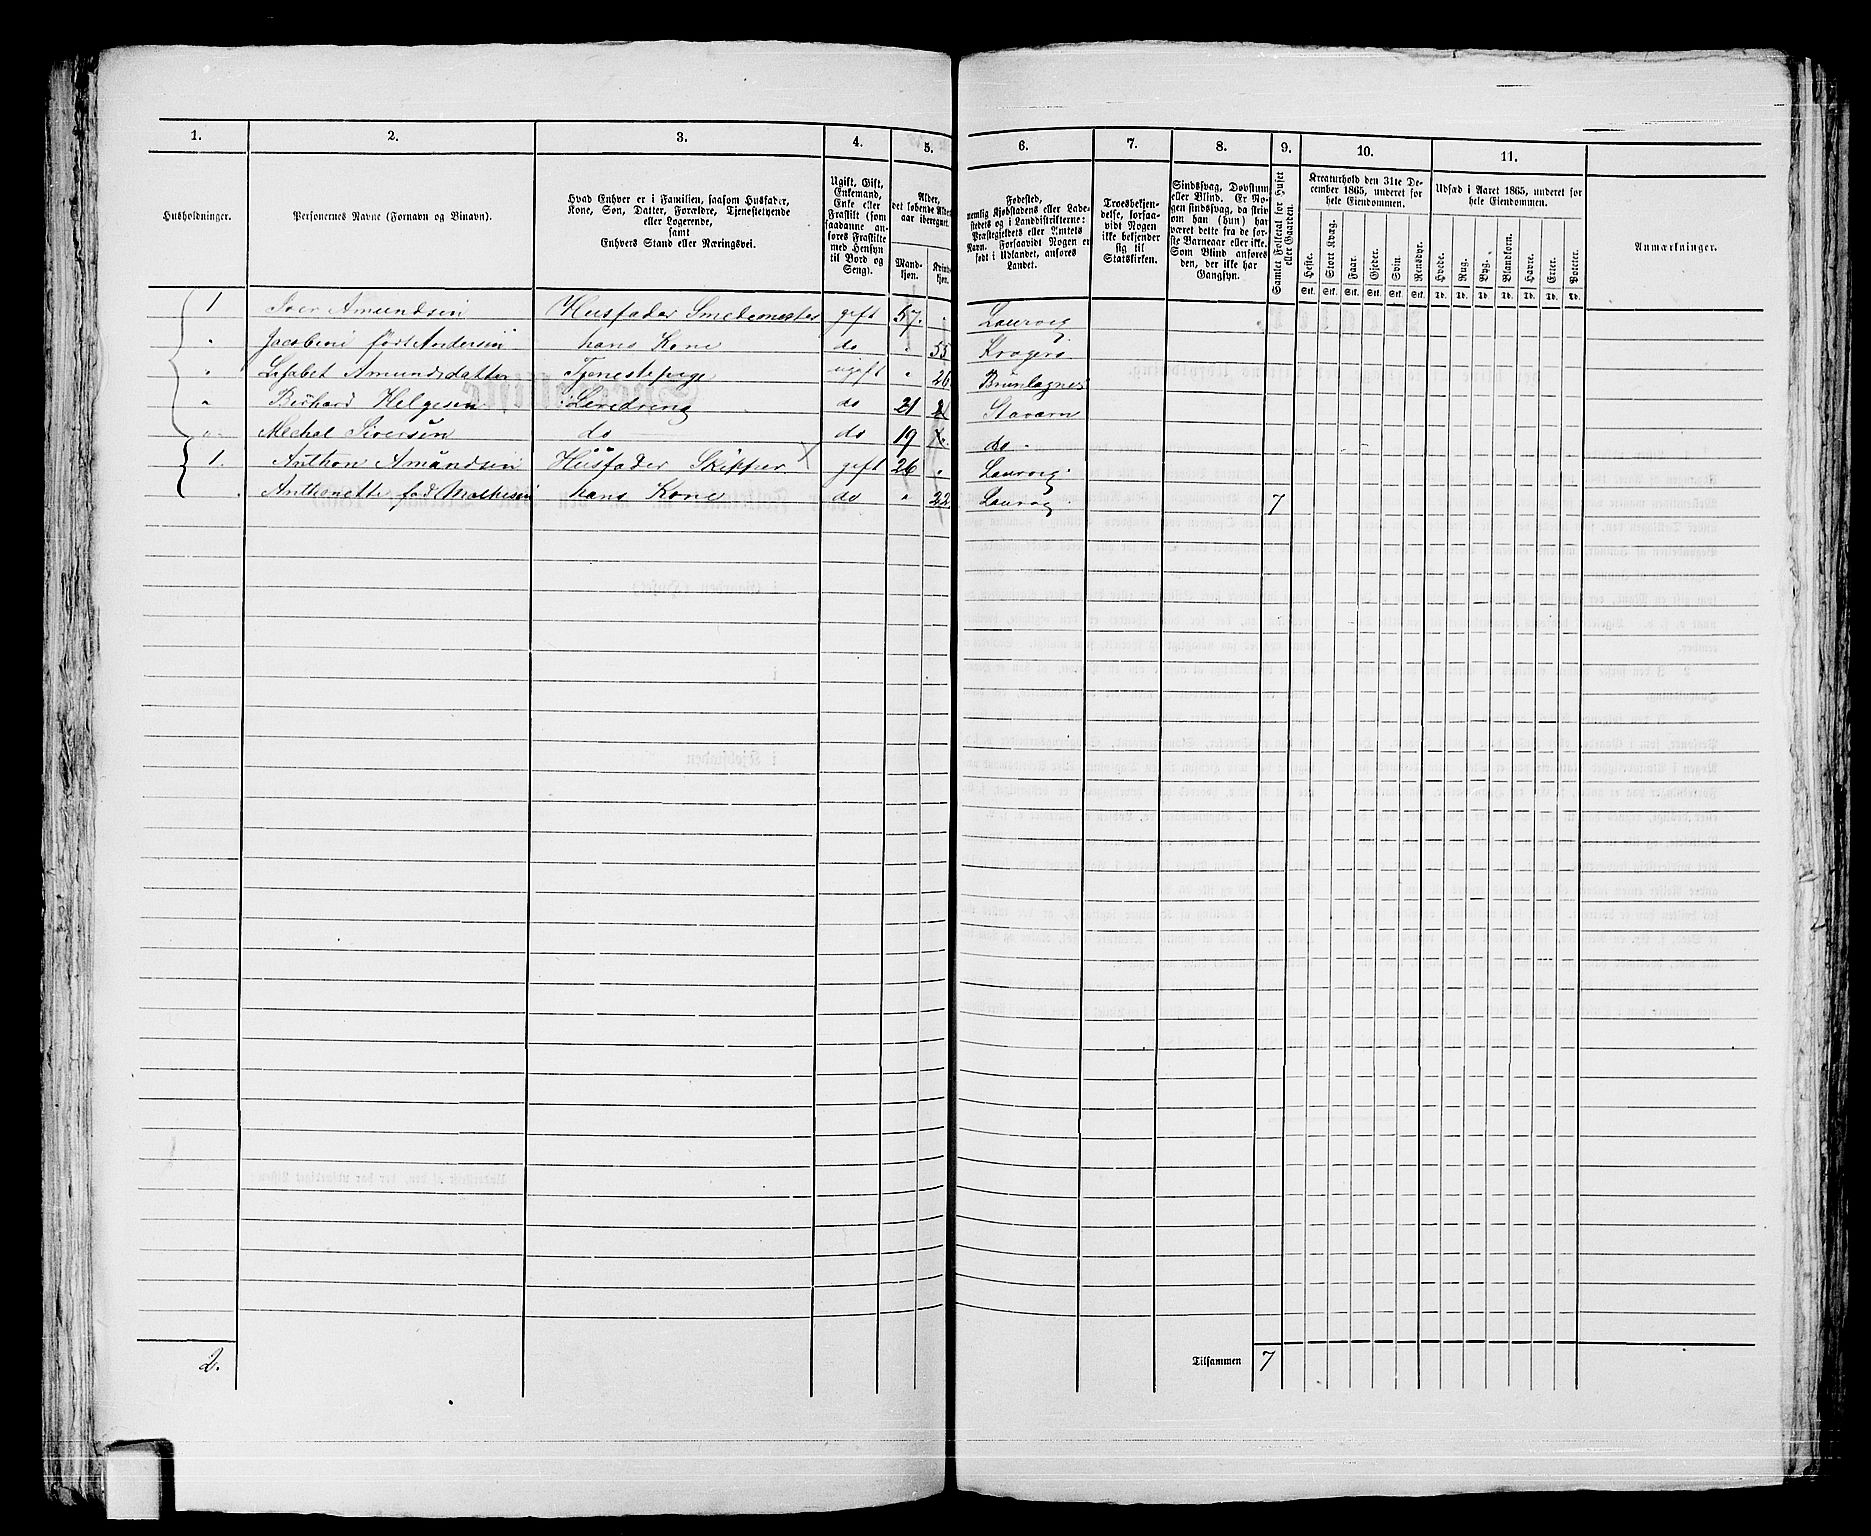 1. 2. 3. 4. 5. 6. 7. 8. 9. 10. 11.
Husholdninger.
Personernes Navne (Fornavn og Binavn).
Hvad Enhver er i Familien, saasom Husfader,
Kone, Søn, Datter, Forældre, Tjenestetyende
eller Logerende,
samt
Enhvers Stand eller Næringsvei.
Ugift, Gift,
Enkemand,
Enke eller
Fraskilt (som
saadanne an-
føres Fraskilte
med Hensyn
til Bord og
Seng).
Alder,
det løbende Alders-
aar iberegnet.
Mand-
kjøn.
Kvinde-
kjøn.
Fødested,
nemlig Kjøbstadens eller Lade-
stedets og i Landdistrikterne:
Præstegjeldets eller Amtets
Navn. Forsaavidt Nogen er
født i Udlandet, anføres
Landet.
Troesbekjen-
delse, forsaa-
vidt Nogen
ikke bekjender
sig til
Statskirken.
Sindssvag, Døvstum
eller Blind. Er No-
gen sindssvag, da skriv
om han (hun) har
været dette fra de før-
ste Barneaar eller ikke.
Som Blind anføres
den, der ikke har
Gangsyn.
Samlet Folketal for Huset
eller Gaarden.
Kreaturhold den 31te De-
cember 1865, underet for
hele Eiendommen.
Heste. Stort Kvæg. Faar. Gjeder. Svin. Rensdyr.
Stk. Stk. Stk. Stk. Stk. Stk.
Udsæd i Aaret 1865, underet for
hele Eiendommen.
Hvede. Rug. Byg. Blandkorn. Havre. Erter. Poteter.
Td. Td. Td. Td. Td. Td. Td.
Anmærkninger.
1 Iver Amundsen Husfader Smedemester gift 57. " Laurvig
" Jacobine født Andersen hans Kone do " 55 Kragerø
" Lisabet Amundsdatter Tjenestepige ugift " 26 Brunlagnes
" Helgesen Leredreng do 21 Staværn
" Mechal Siversen do do 19 do
1. Anthon Amundsen Husfader Skipper gift 26 " Laurvig
" Anthonette fød Mathisen hans Kone do " 22 Laurvig 7
2. Tilsammen 7